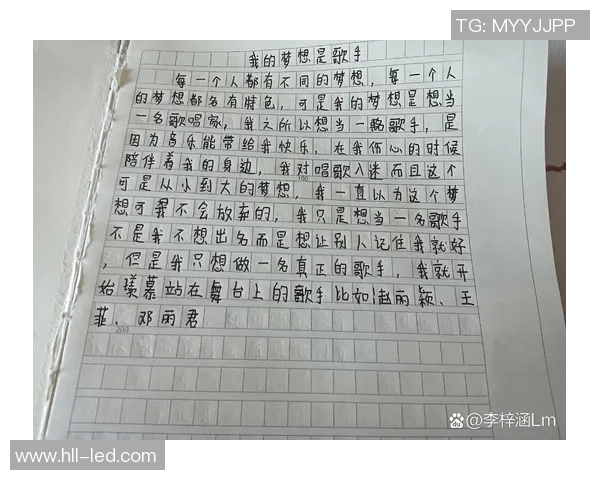 TG: MYYJJPP
我的梦想是歌手
每一个人都有不同的梦想，每一个人
的梦想都各有特色，可是我的梦想是想当
一名歌唱家，我之所以想当一名歌手，是
因为音乐能带给我快乐，在我伤心的时候
陪伴着我的身边，我对唱歌入迷而且这个
可是从小到大的梦想，我一直以为这个梦
想可我不会放弃的，我只是想当一名歌手
不是我不想出名而是想让别人记住我就好
，但是我只想做一名真正的歌手，我就开
始羡慕站在舞台上的歌手比如:赵丽颖、王
菲、邓丽君
100
200
Baidu @李梓涵Lm
www.hll-led.com